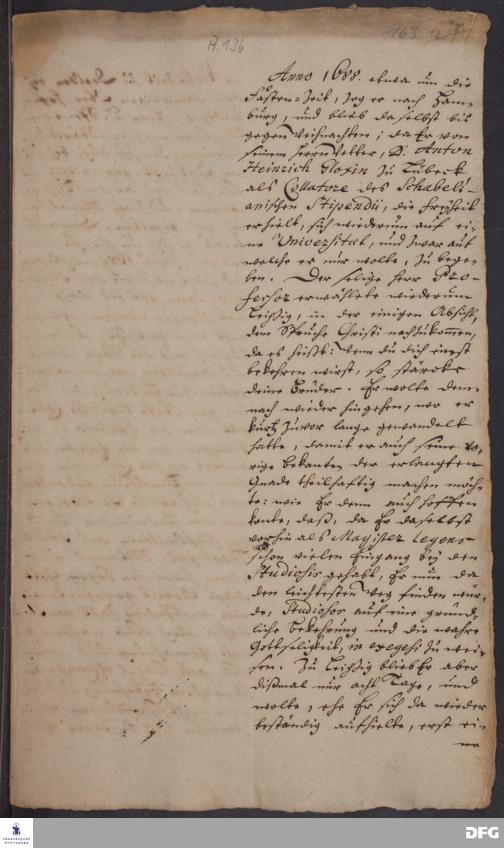 A. 136
163.
Anno 1688. etwa um die
Fasten-Zeit, zog er nach Ham-
burg, und blieb daselbst bis
gegen Weihnachten; da Er von
seinem Herrn Vetter, D. Anton
Heinrich Gloxin zu Lübeck
als Collatore des Schabeli-
anischen Stipendii, die Freyheit
erhielt, sich wiederum auf ei-
ne Universität, und zwar auf
welche er nur wolte, zu bege-
ben. Der selige Herr Pro-
fessor erwählete wiederum
Leipzig, in der einigen Absicht,
dem Spruche Christi nachzukommen,
da es heißt: Wenn du dich einst
bekehren wirst, so stärcke
deine Brüder. Er wolte dem-
nach wieder hingehen, wo er
kurtz zuvor lange gewandelt
hätte, damit er auch seine vo-
rige bekanten der erlangten
Gnade theilhaftig machen möch-
te: wie Er denn auch hoffen
konte, daß, da Er daselbst
vorhin als Magister legens
schon vielen Eingang bey den
Studiosis gehabt, Er nun da
den leichtesten Weg finden wür-
de, Studiosos auf eine gründ-
liche Bekehrung und die wahre
Gottseligkeit, in exegesi zu wei-
sen. Zu Leipzig blieb Er aber
dißmal nur acht Tage, und
wolte, ehe Er sich da wieder
beständig aufhielte, erst ei-
ne
FRANCKESCHE
STIFTUNGEN
DFG